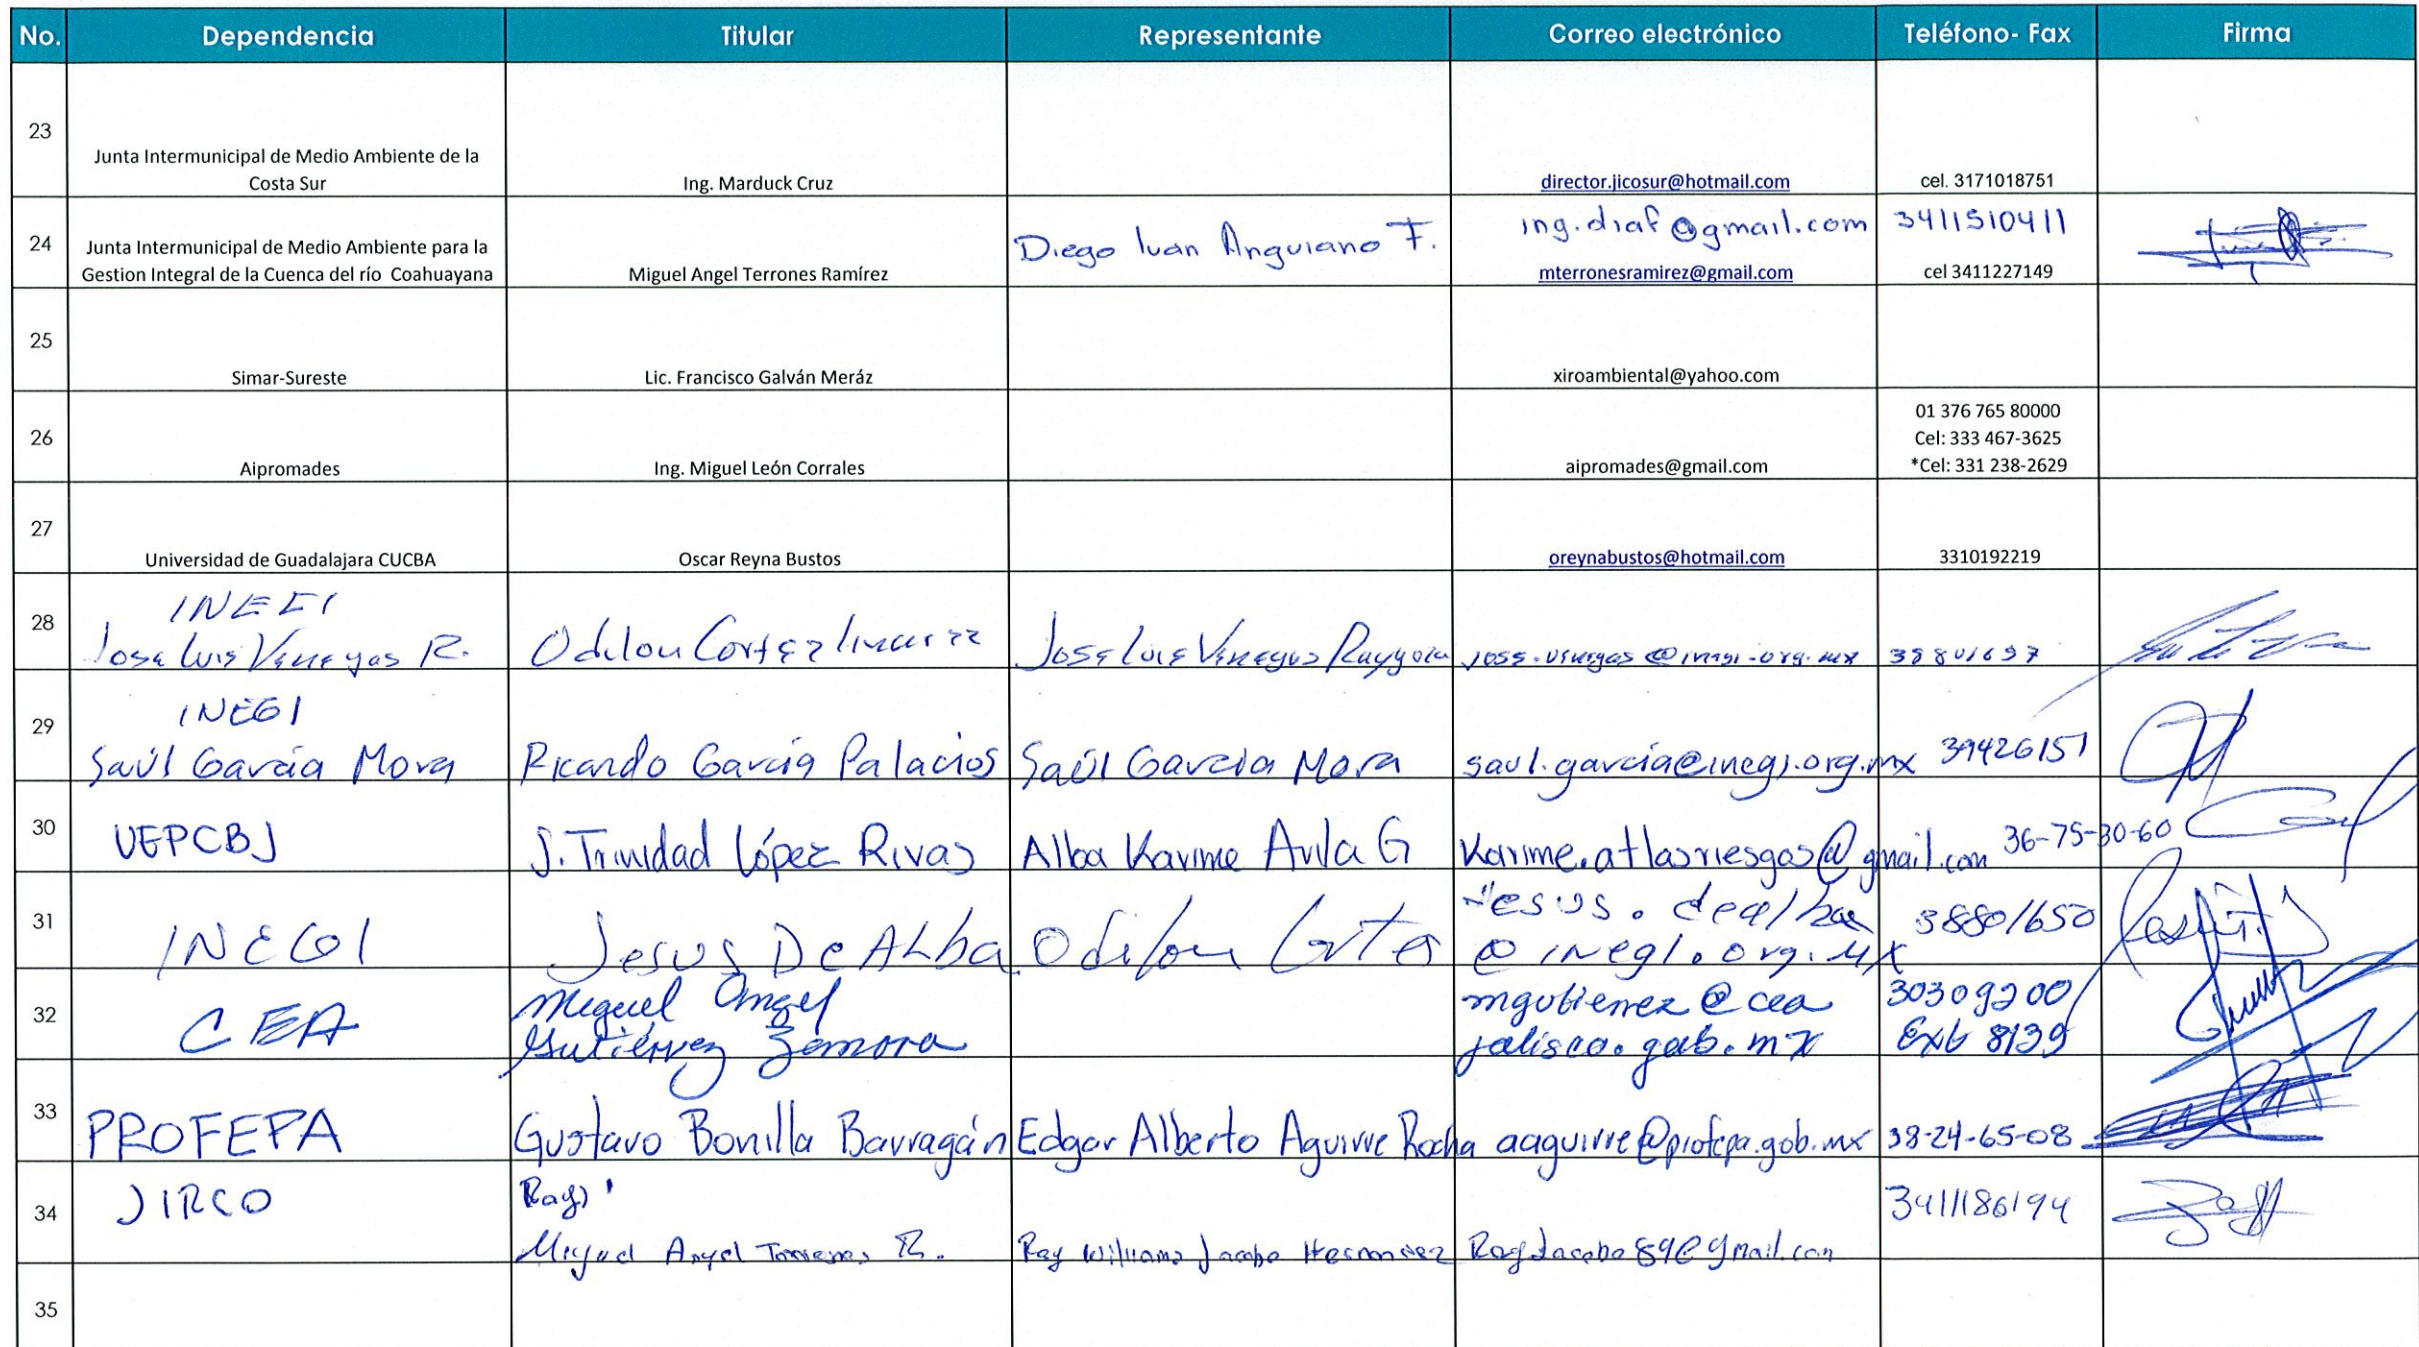 No. Dependencia Titular Representante Correo electrónico Teléfono- Fax Firma
23
Junta Intermunicipal de Medio Ambiente de la
Costa Sur
Ing. Marduck Cruz
director.jicosur@hotmail.com
cel. 3171018751
24
Junta Intermunicipal de Medio Ambiente para la
Gestion Integral de la Cuenca del río Coahuayana
Miguel Angel Terrones Ramírez
Diego Ivan Anguiano F.
ing.diaf@gmail.com
mterronesramirez@gmail.com
3411510411
cel 3411227149
25
Simar-Sureste
Lic. Francisco Galván Meráz
xiroambiental@yahoo.com
26
Aipromades
Ing. Miguel León Corrales
aipromades@gmail.com
01 376 765 80000
Cel: 333 467-3625
*Cel: 331 238-2629
27
Universidad de Guadalajara CUCBA
Oscar Reyna Bustos
oreynabustos@hotmail.com
3310192219
28
INEGI
Jose Luis Venegas R.
Odilon Cortez
Jose Luis Venegas Raygoza
jose.venegas@inegi.org.mx
38801697
29
INEGI
Saúl García Mora
Ricardo García Palacios
Saúl García Mora
saul.garcia@inegi.org.mx
39426151
30
UEPCBJ
J. Trinidad López Rivas
Alba Karime Avila G
Karime.atlasriesgos@gmail.com
36-75-30-60
31
INEGI
Jesus De Alba
Odilon Cortes
Jesus.dealba
@inegi.org.mx
38801650
32
CEA
Miguel Angel
Gutiérrez Zamora
mgutierrez@cea
jalisco.gob.mx
30309200
Ext 8139
33
PROFEPA
Gustavo Bonilla Barragán
Edgar Alberto Aguirre Rocha
aaguirre@profepa.gob.mx
38-24-65-08
34
JIRCO
Ray
Miguel Angel Terrones R.
Ray Williams Jacobo Hernandez
RayJacobo89@gmail.com
3411186194
35